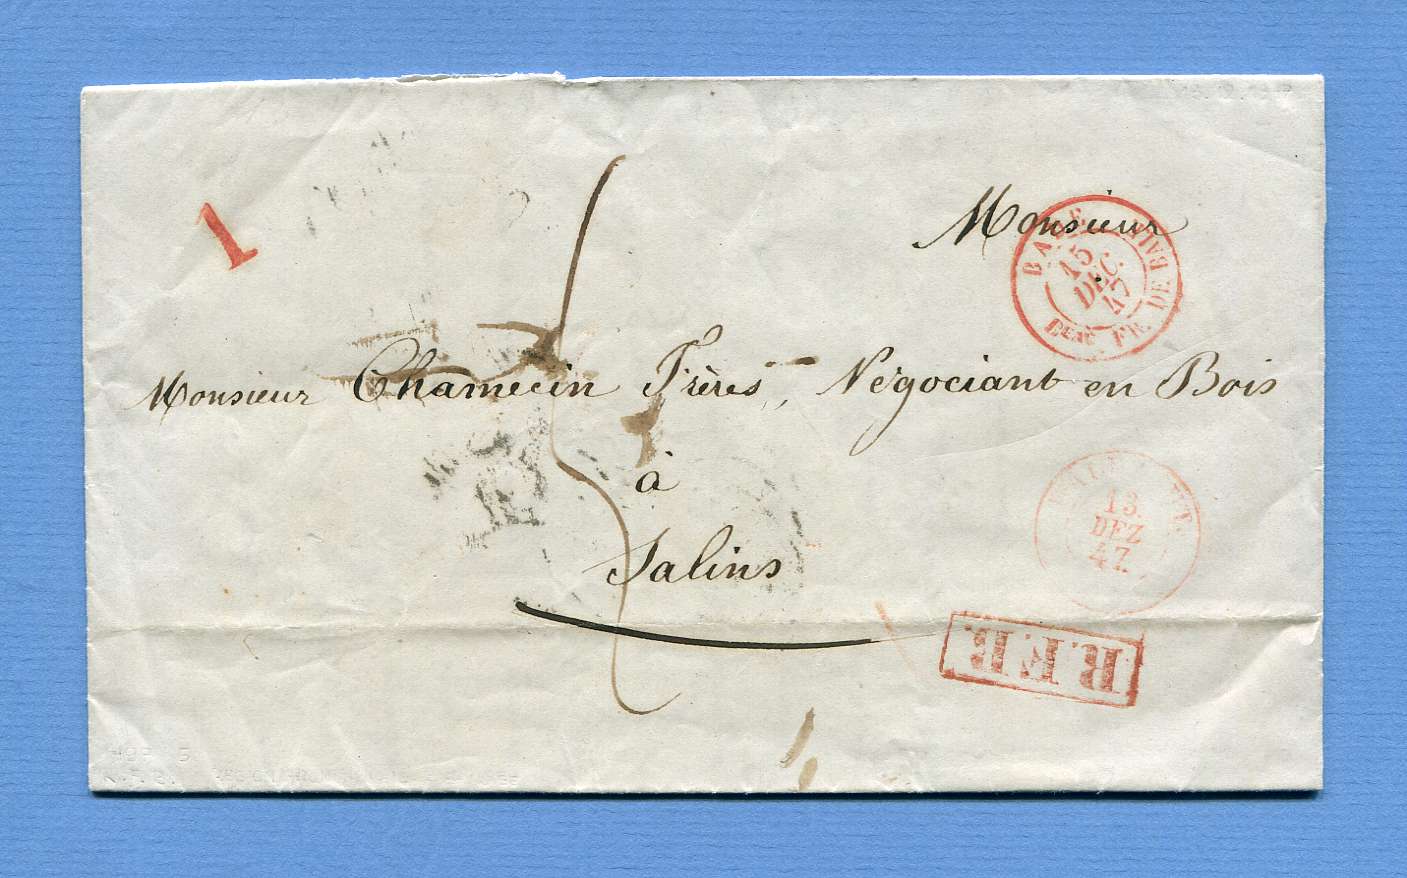 1
Monsieur
BALE
15
DEC.
47
BEAU FR. DE BALE
Monsieur Chamecin Frères, Négociant en Bois
à
Salins
13.
DEZ
47.
R.F.B.